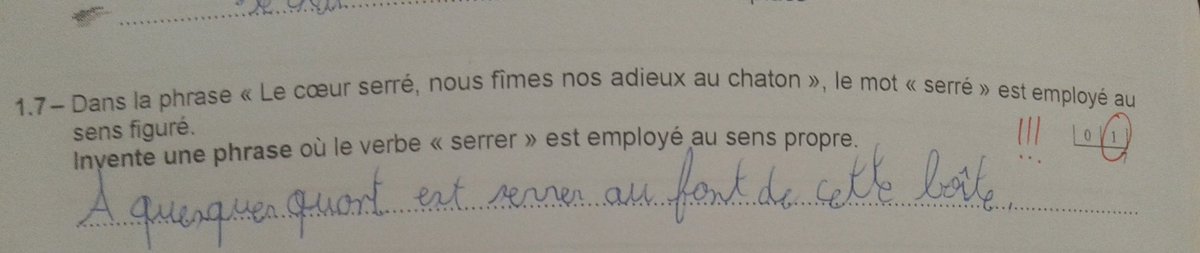 1.7 – Dans la phrase « Le cœur serré, nous fîmes nos adieux au chaton », le mot « serré » est employé au
sens figuré.
Invente une phrase où le verbe « serrer » est employé au sens propre.
!!! 0 1
A quequer quort est serrer au font de cette boîte.